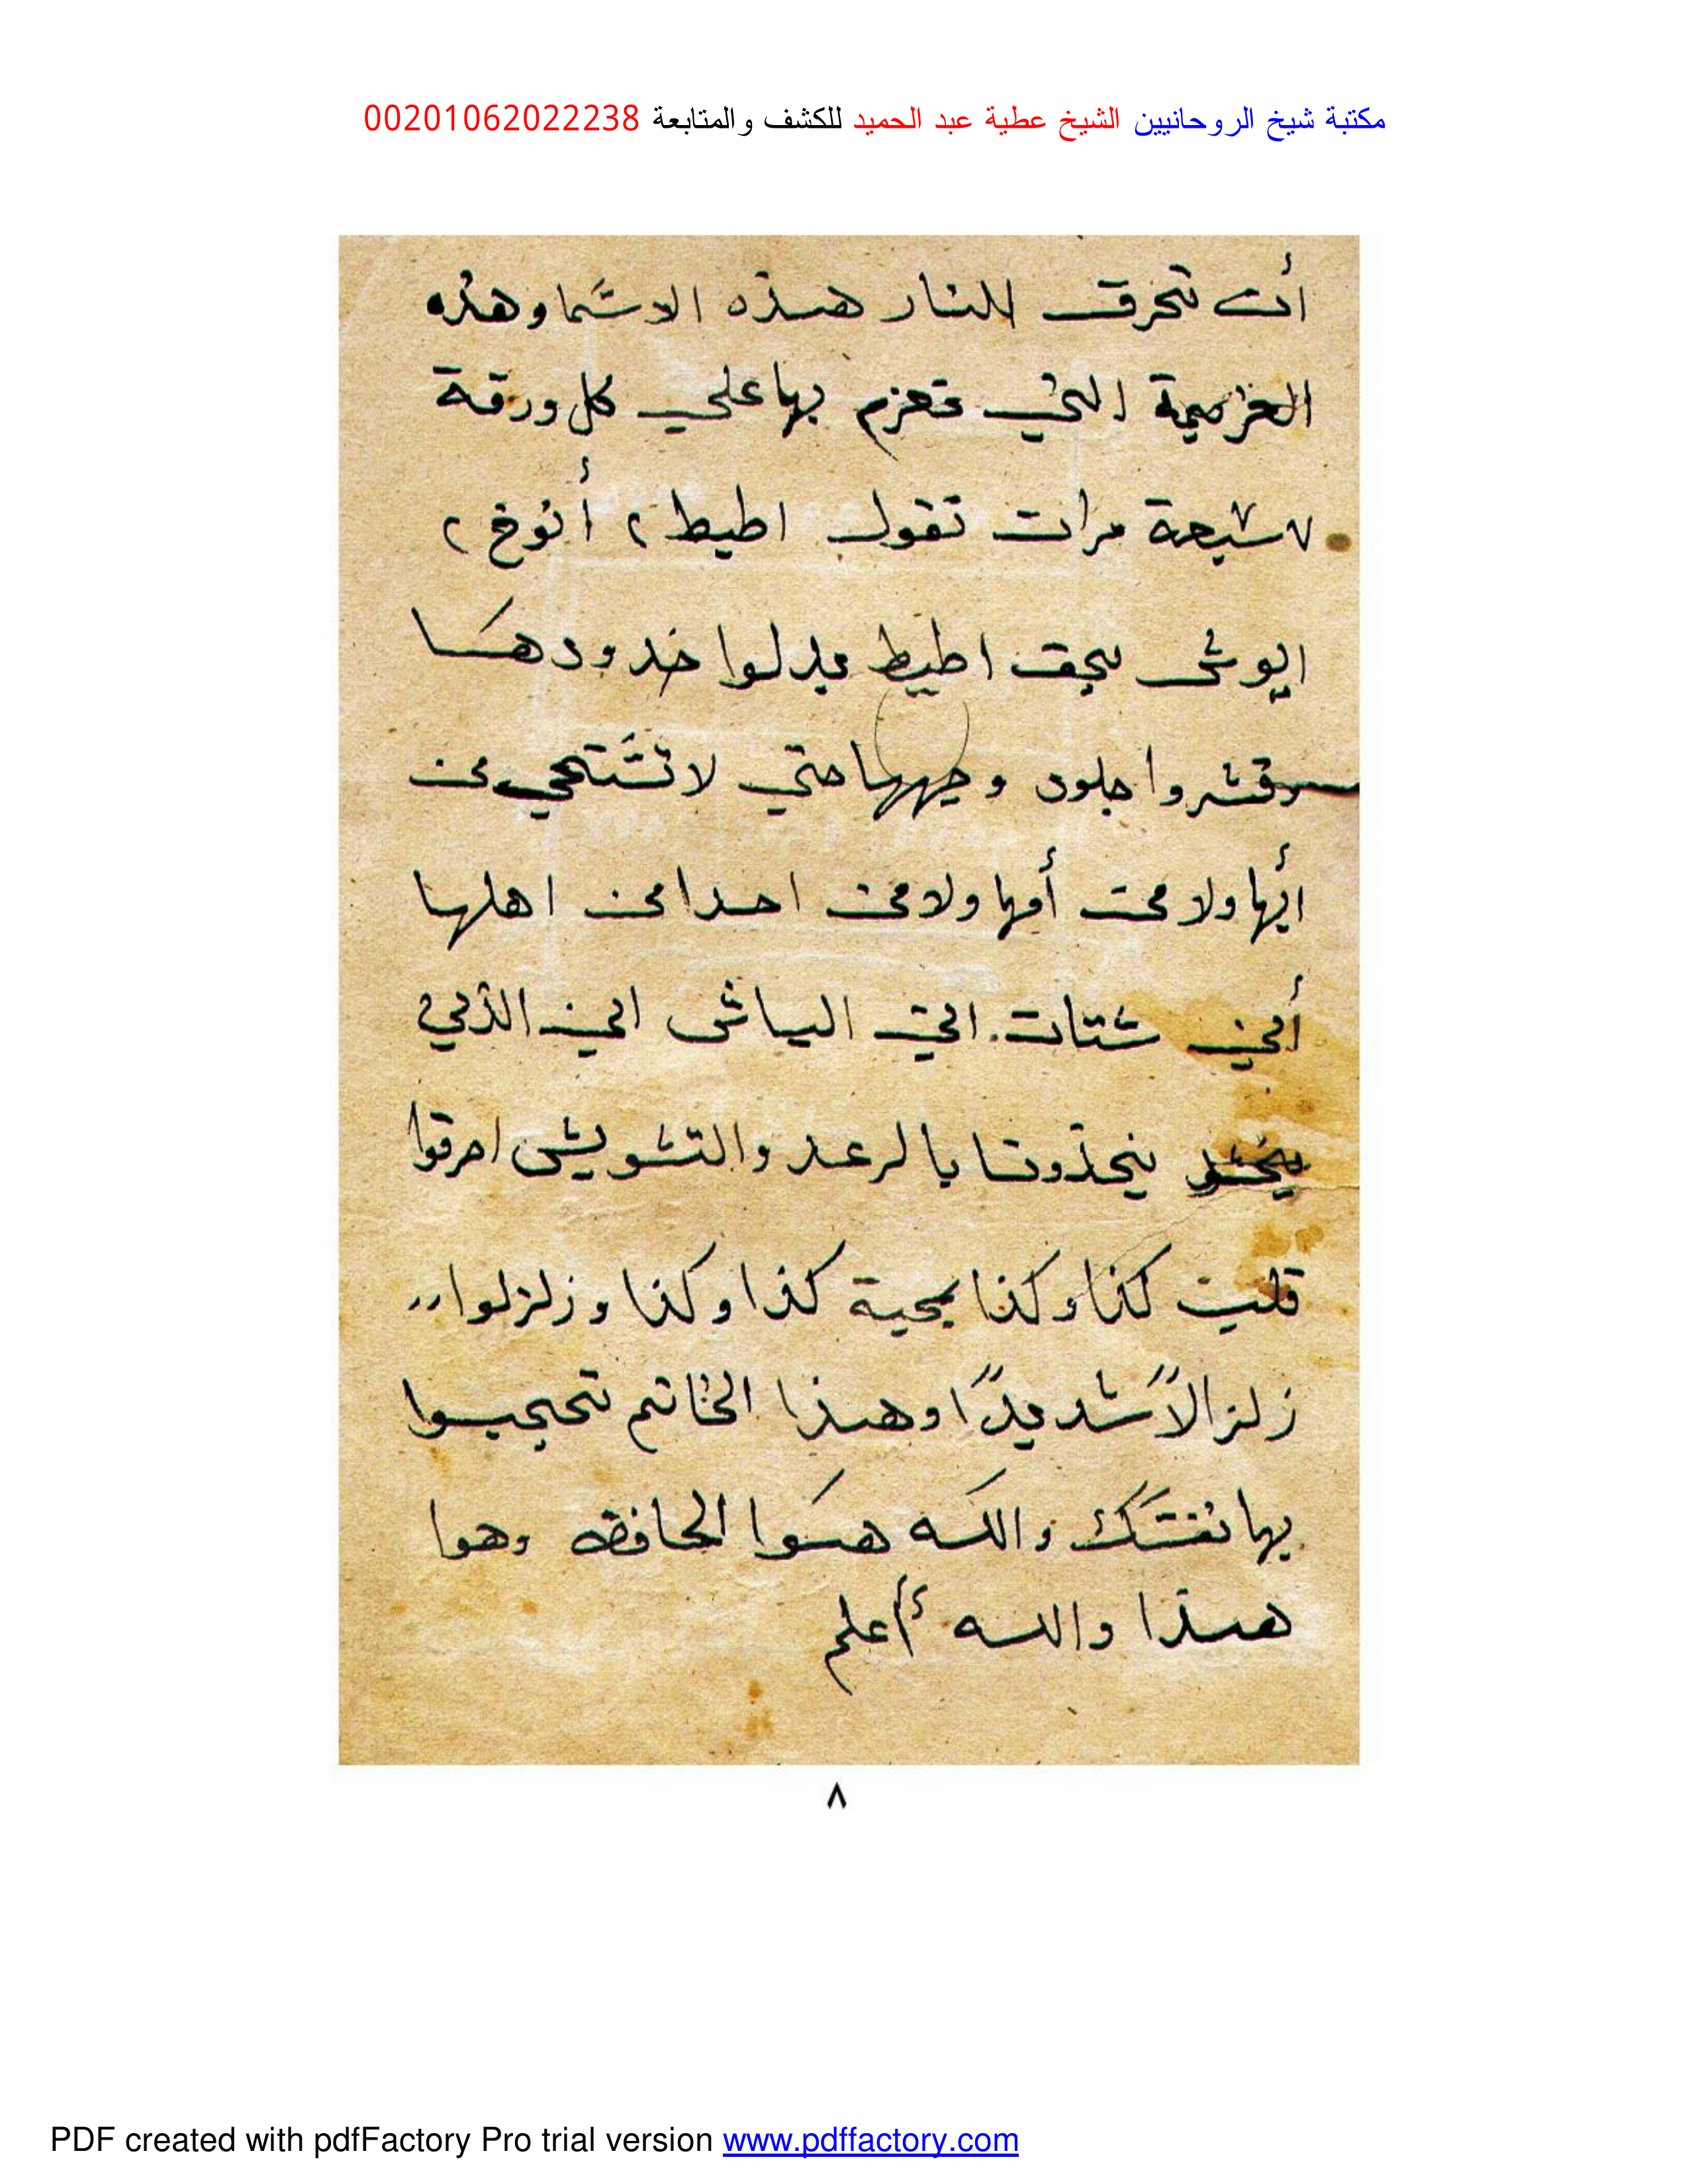 مكتبة شيخ الروحانيين الشيخ عطية عبد الحميد للكشف والمتابعة 00201062022238
أن تحرق للنار هذه الاسما وهذه
العزيمة التي تعزم بها على كل ورقة
٧ سبعة مرات تقول اطيط ٢ أنوخ ٢
ايوش اطيط بدلوا خدودها
وقشروا جلود وجهها حتي لا تستحي من
ابها ولا من أمها ولا من احدا من اهلها
أين شتات اين الياش اين الذي
بالرعد والتشويش احرقوا
قلب كذا وكذا بمحبة كذا وكذا وزلزلوا
زلزالاً شديدًا وهذا الخاتم تحجبوا
بها نفسك والله هوا الحافظ وهوا
هذا والله أعلم
٨
PDF created with pdfFactory Pro trial version www.pdffactory.com